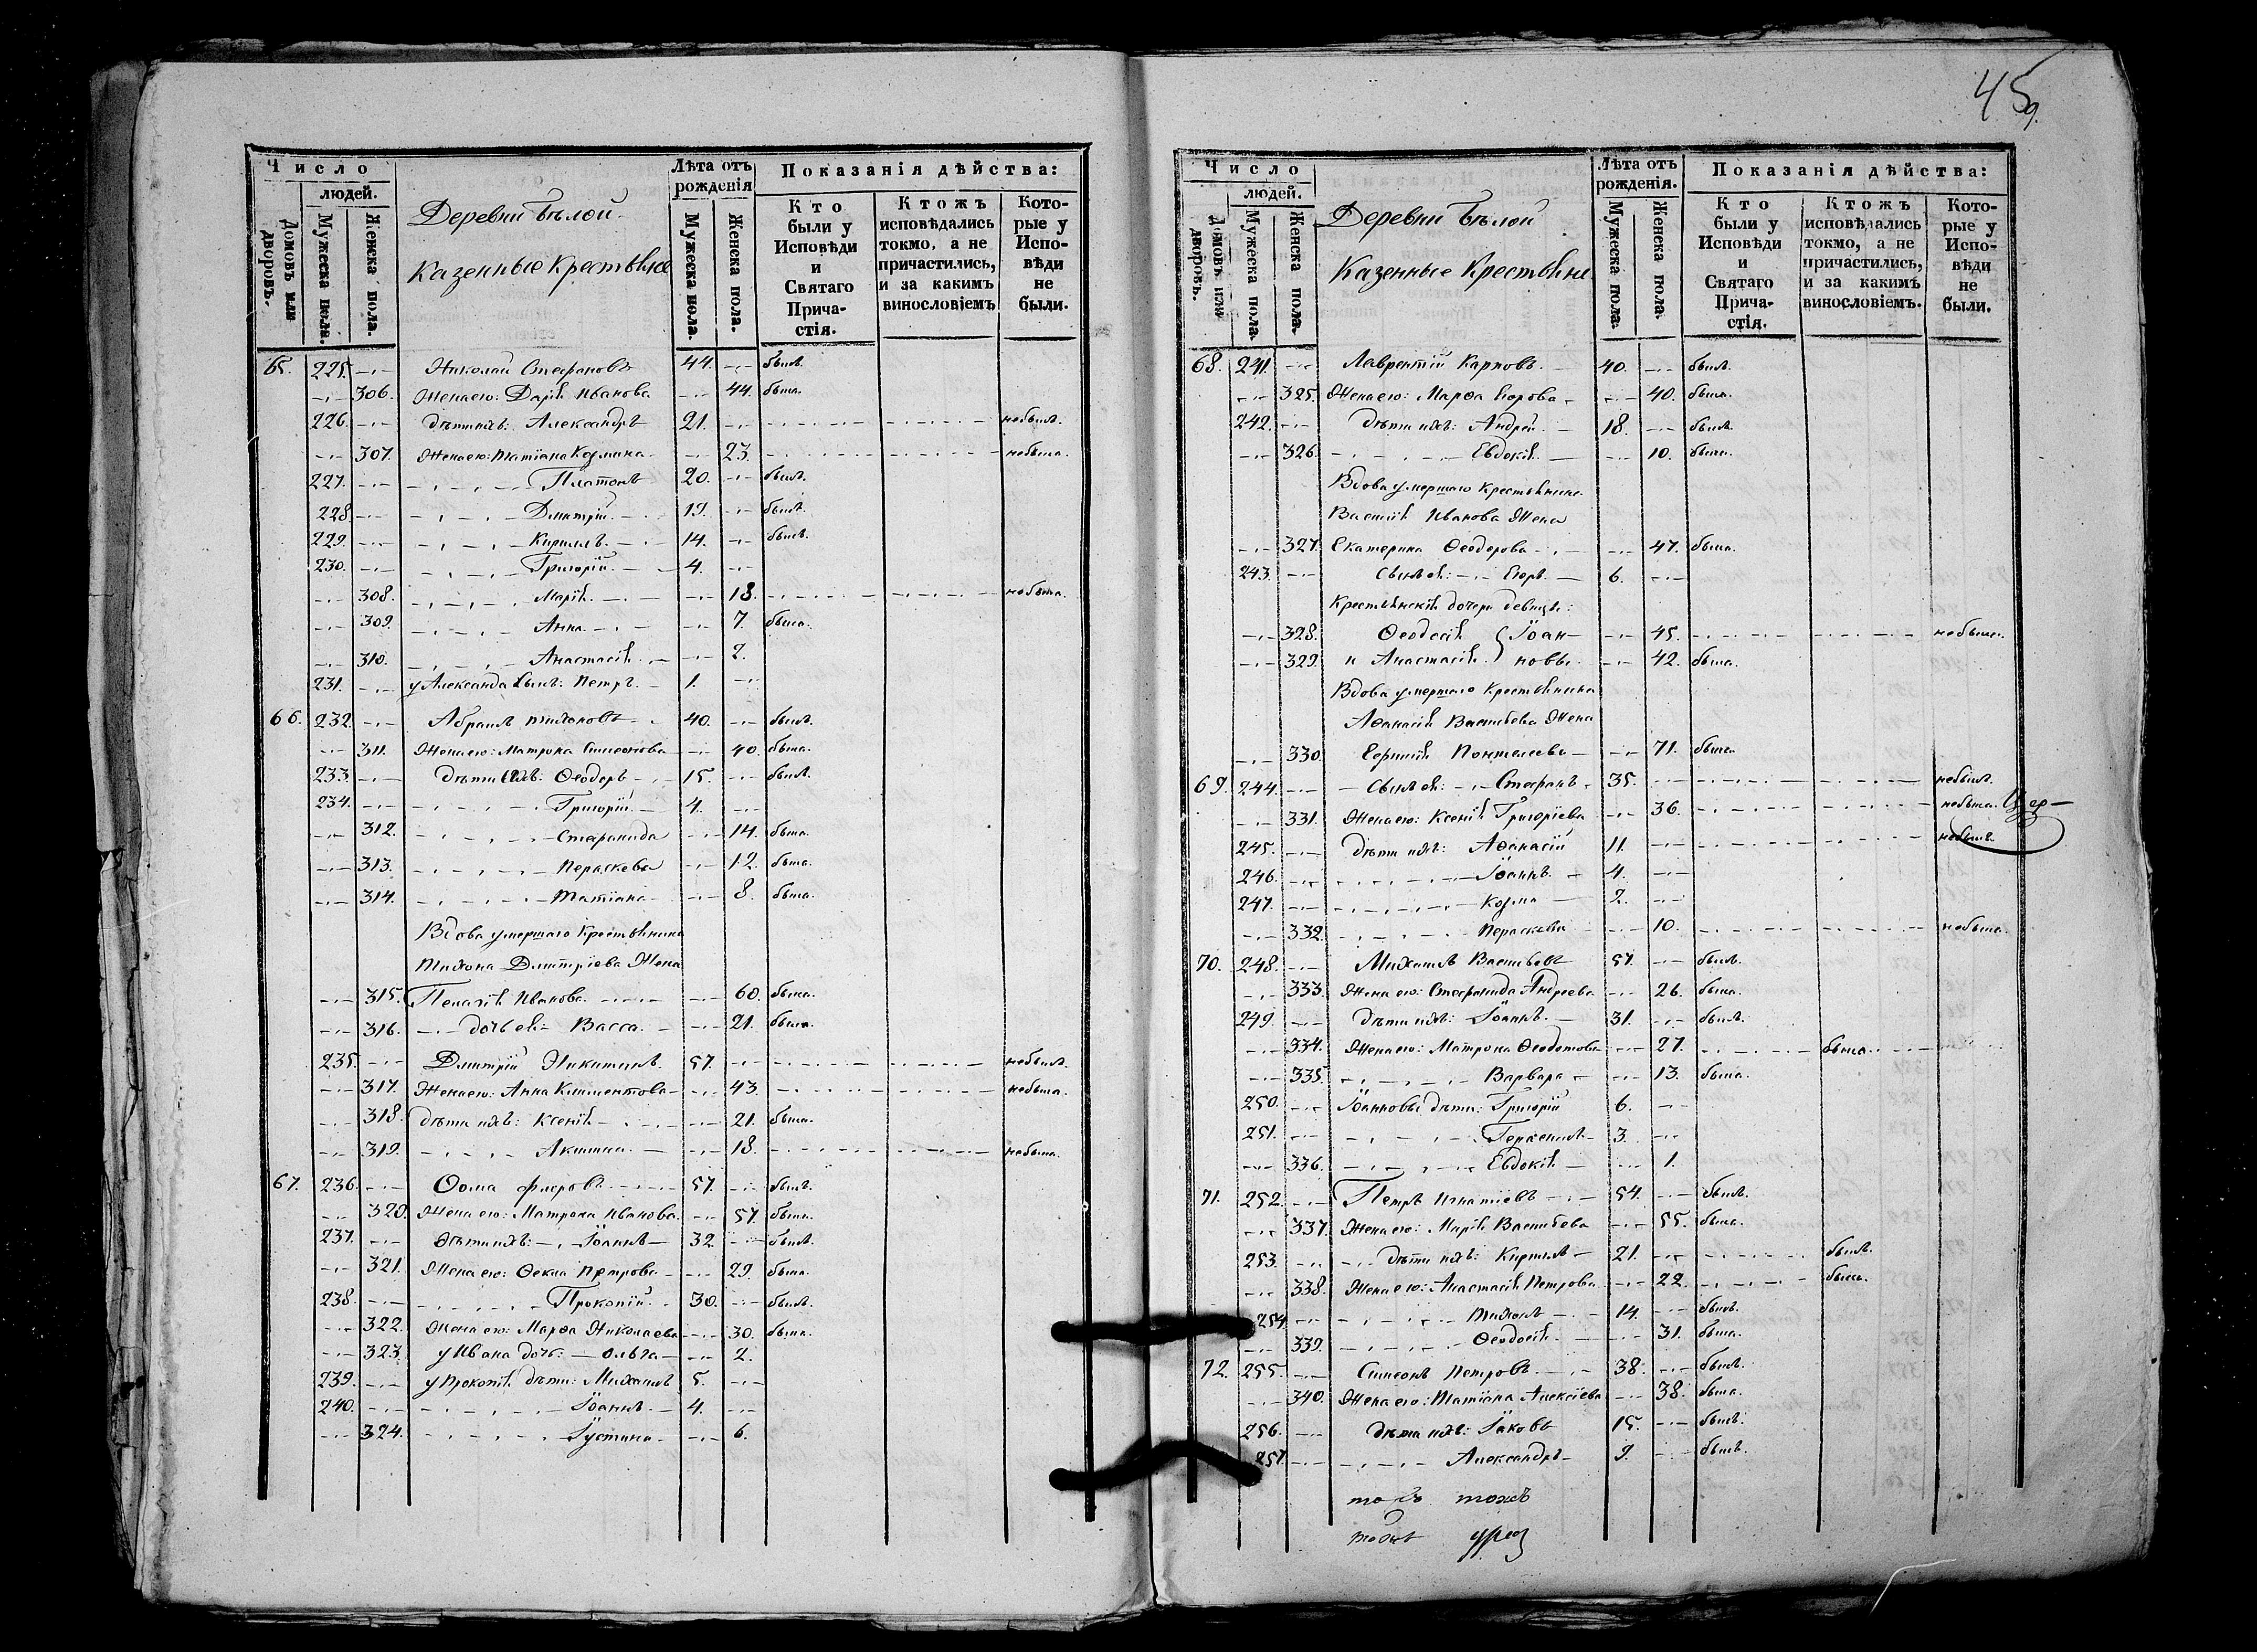 45
9.
Число
людей.
Домовъ или дворовъ.
Мужеска пола.
Женска пола.
Деревни Бѣлой
Казенные Крестьяне
Лѣта отъ рожденія
Мужеска пола.
Женска пола.
Показанія дѣйства:
Кто были у Исповѣди и Святаго Причастія.
Ктожъ исповѣдались токмо, а не причастились, и за какимъ винословіемъ
Которые у Исповѣди не были.
65. 225. Николай Стефановъ 44. былъ.
306. Жена его: Дарія Иванова 44. была.
226. Дѣти ихъ: Александръ 21. небылъ.
307. Жена его: Татіана Козмина 23. небыла.
227. Платонъ 20. былъ.
228. Дмитрій 19. былъ.
229. Кириллъ 14. былъ.
230. Григорій 4.
308. Марія 18. небыла.
309. Анна 7. была.
310. Анастасія 2.
231. у Александра сынъ: Петръ 1.
66. 232. Абрамъ Тихоновъ 40. былъ.
311. Жена его: Матрона Симеонова 40. была.
233. Дѣти ихъ: Ѳеодоръ 15. былъ.
234. Григорій 4.
312. Стефанида 14. была.
313. Параскева 12. была.
314. Татіана 8. была.
Вдова умершаго Крестьянина
Тихона Дмитріева Жена
315. Пелагія Иванова 60. была.
316. дочь ея Васса 21. была.
235. Дмитрій Никитинъ 57. небылъ.
317. Жена его: Анна Климентова 43. небыла.
318. Дѣти ихъ: Ксенія 21. была.
319. Акилина 18. небыла.
67. 236. Ѳома 57. былъ.
320. Жена его: Матрона Иванова 57. была.
237. Дѣти ихъ: Іоаннъ 32. былъ.
321. Жена его: Ѳекла Петрова 29. была.
238. Прокопій 30. былъ.
322. Жена его: Марѳа Николаева 30. была.
323. у Ивана дочь: Ольга 2.
239. у Прокопія дѣти: Михаилъ 5.
240. Іоаннъ 4.
324. Іустина 6.
Число
людей.
Домовъ или дворовъ.
Мужеска пола.
Женска пола.
Деревни Бѣлой
Казенные Крестьяне
Лѣта отъ рожденія.
Мужеска пола.
Женска пола.
Показанія дѣйства:
Кто были у Исповѣди и Святаго Причастія.
Ктожъ исповѣдались токмо, а не причастились, и за какимъ винословіемъ.
Которые у Исповѣди не были.
68. 241. Лаврентій Карповъ 40. былъ.
325. Жена его: Марѳа Егорова 40. была.
242. Дѣти ихъ: Андрей 18. былъ.
326. Евдокія 10. была.
Вдова умершаго Крестьянина
Василія Иванова Жена
327. Екатерина Ѳеодорова 47. была.
243. Сынъ ея: Егоръ 6.
Крестьянскія дочери девицы:
328. Ѳеодосія } Іоан- 45. небыла.
329. и Анастасія } новы 42. была.
Вдова умершаго Крестьянина
Аѳанасія Васильева Жена
330. Пантелеева 71. была
69. 244. Сынъ ея: Стефанъ 35. небылъ.
331. Жена его: Ксенія Григоріева 36. небыла.
245. Дѣти ихъ: Аѳанасій 11. небылъ.
246. Іоаннъ 4.
247. Козма 2.
332. Параскева 10. небыла.
70. 248. Михаилъ Васильевъ 57. былъ.
333. Жена его: Стефанида Андреева 26. была.
249. Дѣти ихъ: Іоаннъ 31. былъ.
334. Жена его: Матрона Ѳеодотова 27. была.
335. Варвара 13. была.
250. Іоанновы дѣти: Григорій 6.
251. Герасимъ 3.
336. Евдокія 1.
71. 252. Петръ Игнатіевъ 54. былъ.
337. Жена его: Марія Васильева 55. была.
253. Дѣти ихъ: Кириллъ 21. былъ.
338. Жена его: Анастасія Петрова 22. была.
254. Тихонъ 14. былъ.
339. Ѳеодосія 31. была.
72. 255. Симеонъ Петровъ 38. былъ.
340. Жена его: Татіана Алексіева 38. была.
256. Дѣти ихъ: Іаковъ 15. былъ.
257. Александръ 9. былъ.